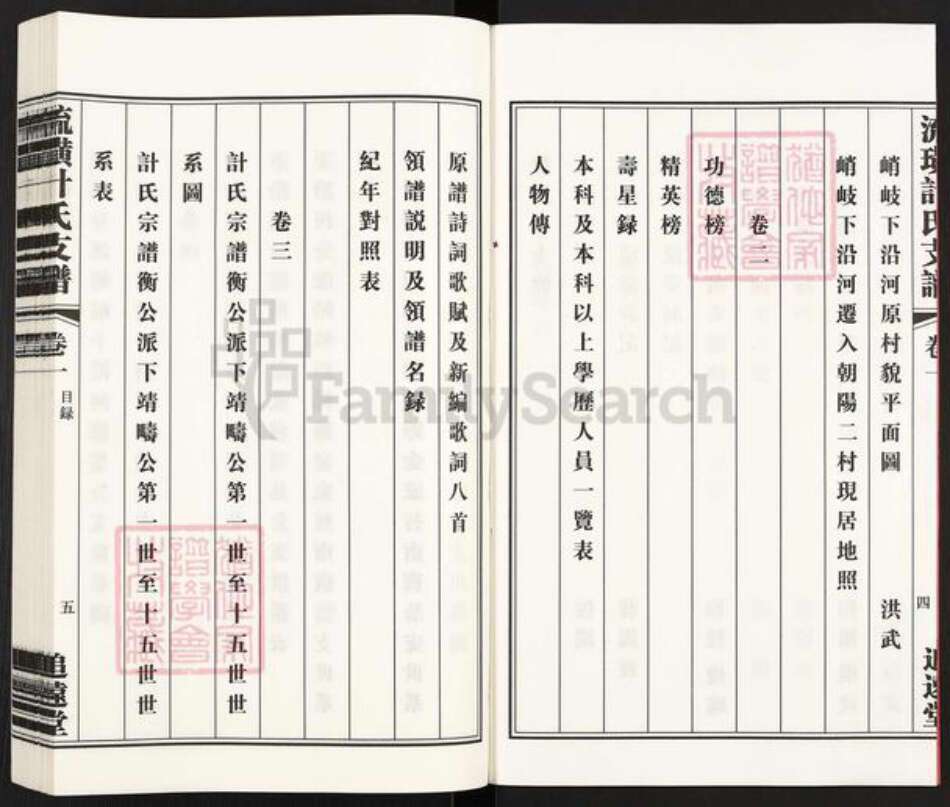 峭岐下沿河原村貌平面圖 洪武
峭岐下沿河遷入朝陽二村現居地照
卷二
功德榜
精英榜
壽星録
本科及本科以上學歷人員一覽表
人物傳
四
原譜詩詞歌賦及新編歌詞八首
領譜説明及領譜名録
紀年對照表
卷三
計氏宗譜衡公派下靖疇公第一世至十五世世
系圖
計氏宗譜衡公派下靖疇公第一世至十五世世
系表
流璜計氏支譜
卷一
目録
五
追遠堂
FamilySearch